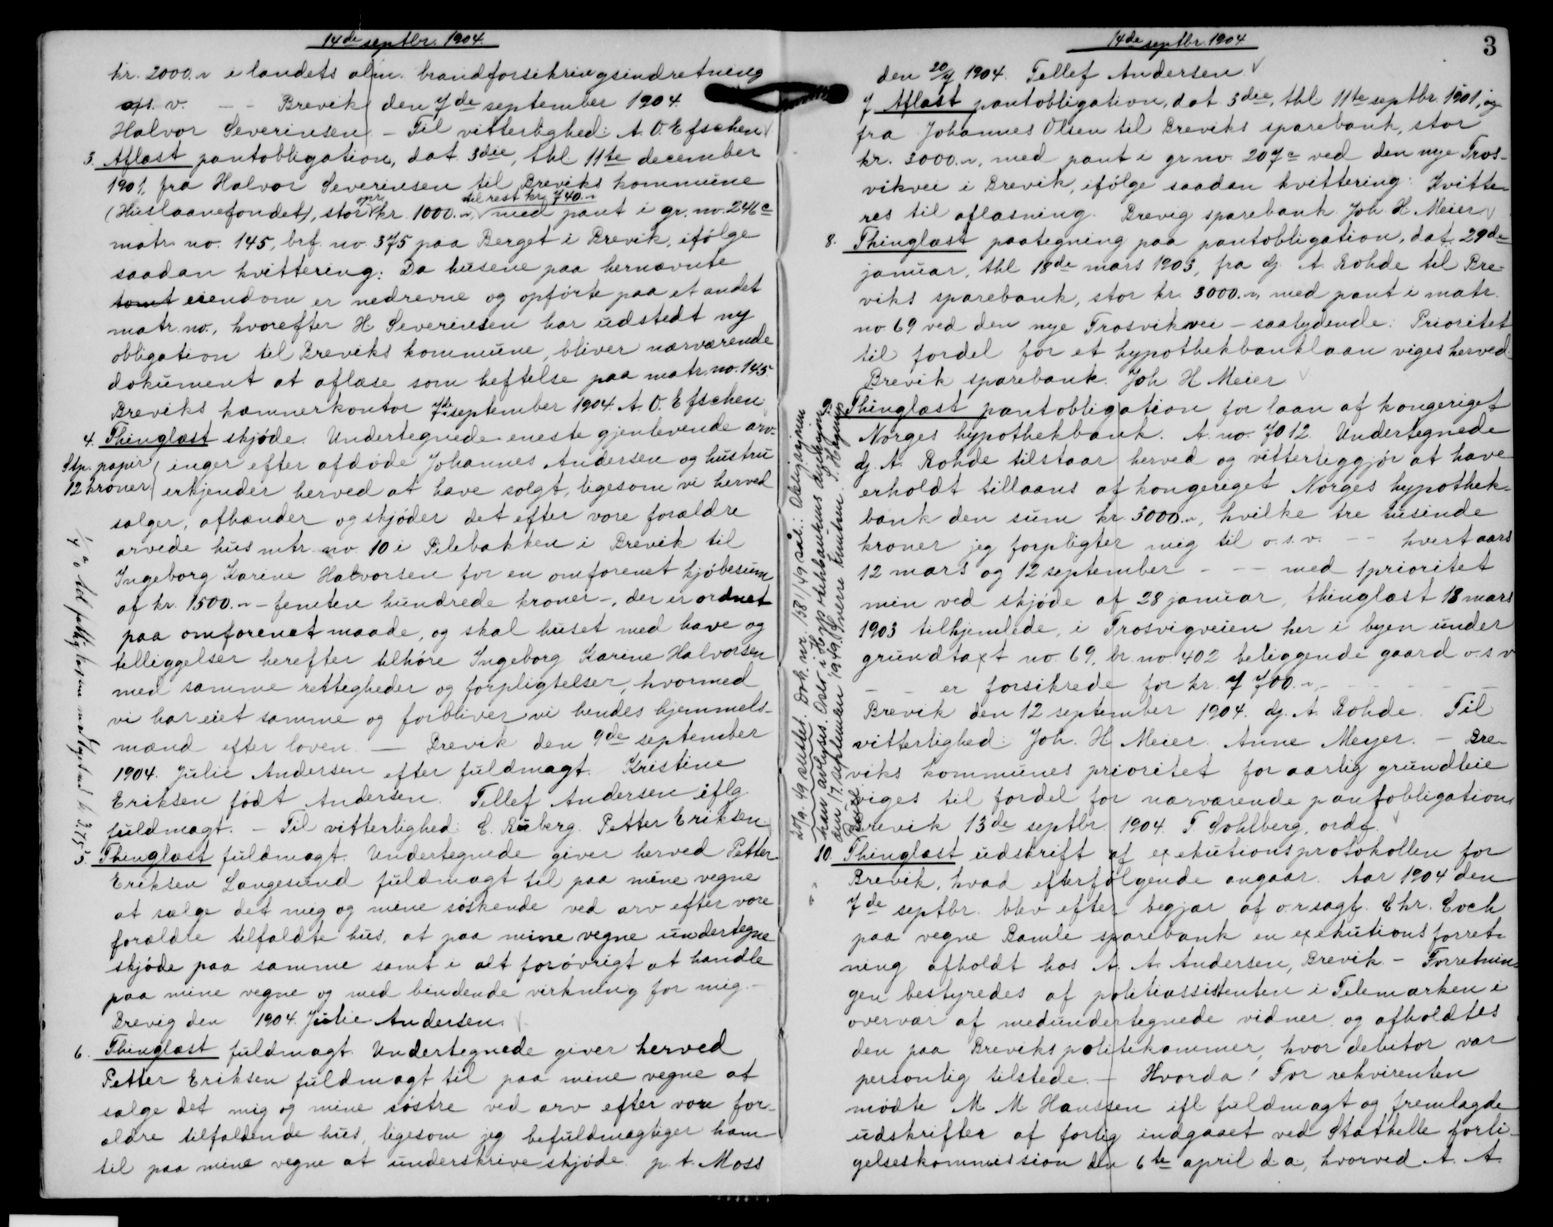 14de septbr. 1904.
kr. 2000.- i landets alm. brandforsikringsindretning
o.s.v. - - Brevik den 7de september 1904.
Halvor Severinsen. - Til vitterlighed: A. O. Efschen
3. Aflæst pantobligation, dat. 3die, thl 11te december
1901, fra Halvor Severinsen til Breviks kommune
(Huslaanefondet), stor opr. kr. 1000.-, til rest kr. 740.- med pant i gr. no. 246c
matr. no. 145, brf. no. 375 paa Berget i Brevik, ifølge
saadan kvittering: Da husene paa hernævnte
tomt eiendom er nedrevne og opførte paa et andet
matr. no., hvorefter H Severinsen har udstedt ny
obligation til Breviks kommune, bliver nærværende
dokument at aflæse som heftelse paa matr. no. 145
Breviks kæmnerkontor 7de september 1904. A. O. Efschen
4. Thinglæst skjøde. Undertegnede eneste gjenlevende arv-
Stp. papir
12 kroner
inger efter afdøde Johannes Andersen og hustru
erkjender herved at have solgt, ligesom vi herved
sælger, afhænder og skjøder det efter vore forældre
arvede hus mtr. no. 10 i Pilebakken i Brevik til
Ingeborg Karine Halvorsen for en omforenet kjøbesum
af kr. 1500.- - femten hundrede kroner -, der er ordnet
paa omforenet maade, og skal huset med have og
tilliggelser herefter tilhøre Ingeborg Karine Halvorsen
med samme rettigheder og forpligtelser, hvormed
vi har eiet samme og forbliver vi hendes hjemmels-
mænd efter loven. - Brevik den 9de september
1904. Julie Andersen efter fuldmagt. Kristine
Eriksen født Andersen. Tellef Andersen iflg.
fuldmagt. - Til vitterlighed: C. Ruberg. Petter Eriksen
5. Thinglæst fuldmagt. Undertegnede giver herved Petter
Eriksen Langesund fuldmagt til paa mine vegne
at sælge det meg og mine søskende ved arv efter vore
forældre tilfaldte hus, at paa mine vegne undertegne
skjøde paa samme samt i alt forøvrigt at handle
paa mine vegne og med bindende virkning for mig. -
Brevig den 1904. Julie Andersen.
6. Thinglæst fuldmagt. Undertegnede giver herved
Petter Eriksen fuldmagt til paa mine vegne at
sælge det mig og mine søstre ved arv efter vore for-
ældre tilfaldende hus, ligesom jeg befuldmægtiger ham
til paa mine vegne at underskrive skjøde p. t. Moss
14de septbr. 1904
3
den 20/4 1904. Tellef Andersen
7 Aflæst pantobligation, dat 3die, thl 11te septbr. 1901, og
fra Johannes Olsen til Breviks sparebank, stor
kr. 3000.-, med pant i gr no. 207a ved den nye Tros-
vikvei i Brevik, ifølge saadan kvittering: Kvitte-
res til aflæsning. Brevig sparebank Joh H Meier
8. Thinglæst paategning paa pantobligation, dat. 29de
januar, thl 18de mars 1903, fra dj. A Rohde til Bre-
viks sparebank, stor kr. 3000.-, med pant i matr.
no 69 ved den nye Trosvikvei - saalydende: Prioritet
til fordel for et hypothekbanklaan viges herved
Brevik sparebank. Joh H Meier
9. Thinglæst pantobligation for laan af kongeriget
Norges hypothekbank. A. no. 7012 Undertegnede
dj. A. Rohde tilstaar herved og vitterliggjør at have
erholdt tillaans af kongeriget Norges hypothek-
bank den sum kr. 3000.-, hvilke tre tusinde
kroner jeg forpligter mig til o.s.v. - - hvert aars
12 mars og 12 september - - - med 1prioritet
min ved skjøde af 28 januar, thinglæst 18 mars
1903 tilhjemlede, i Trosvigveien her i byen under
grundtaxt no. 69, br. no 402 beliggende gaard o.s.v
- - er forsikrede for kr. 7700.- - - - -
Brevik den 12 september 1904. dj. A Rohde. Til
vitterlighed: Joh. H Meier. Anne Meyer. - Bre-
viks kommunes prioritet for aarlig grundleie
viges til fordel for nærværende pantobligation
Brevik 13de septbr 1904. T Sohlberg, ordf.
10. Thinglæst udskrift af exekutionsprotokollen for
Brevik, hvad efterfølgende angaar. Aar 1904 den
7de septbr. blev efter begjær af o.r.sagf. Chr. Coch
paa vegne Bamle sparebank en exekutionsforret-
ning afholdt hos A. A. Andersen, Brevik - Forretnin-
gen bestyredes af politiassistenten i Telemarken i
overvær af medundertegnede vidner og afholdtes
den paa Breviks politikammer, hvor debitor var
personlig tilstede. - Hvorda! For rekvirenten
mødte M M Hanssen ifl fuldmagt og fremlagde
udskrifter af forlig indgaaet ved Stathelle forli-
gelseskommission den 6te april d. a, hvorved A. A